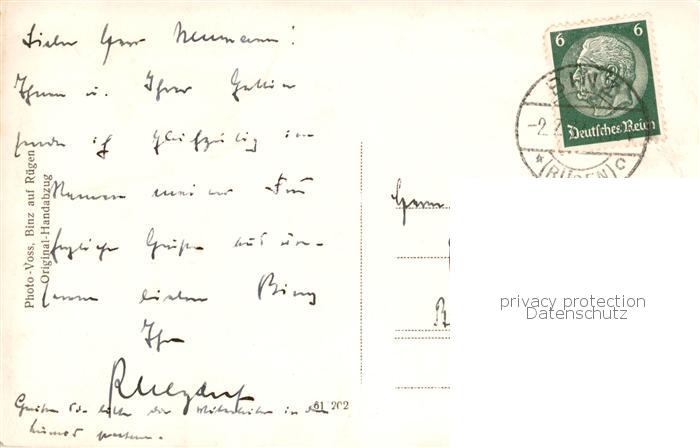 Lieber Herr Neumann!
Ihnen u. Ihrer Gattin
sende ich gleichzeitig im
Namen meiner Frau
herzliche Grüße aus un-
serem lieben Binz
Ihr
Grüßen Sie bitte die Mitarbeiter in der
61 202
Photo-Voss, Binz auf Rügen
Original-Handabzug
6 6
Deutsches Reich
BINZ
-2.
* (RÜGEN) c
Herrn
privacy protection
Datenschutz